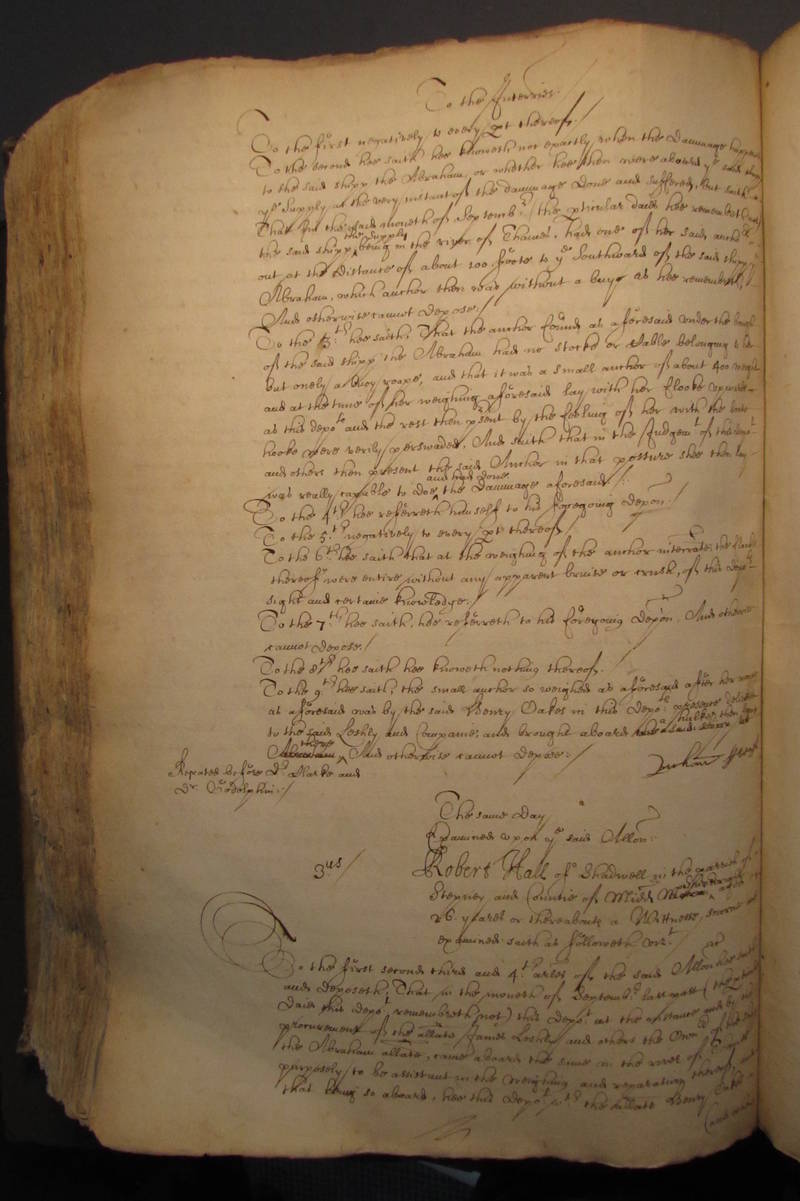 To the Interries:
To the first negatively to every pt thereof./
To the second hee saith hee knoweth not exactly when the dammage happened
to the said shipp the Abraham, or whether hee then were aboard ye said shipp
ye Supply at the very instant of the dammage done and suffered, but saith
That in the said moneth of Septembr (the pticular daie hee remembreth not)
the said shipp the Supply being in the river of Thames, had one of her said anchors
out at the distance of about 100 foote to ye Southward of the said shipp
Abraham, which anchor then was without a buoy as hee remembreth,
And otherwise cannot depose./
To the 3:th hee saith, That the anchor found as aforesaid under the
of the said shipp the Abraham had no stocke or Cable belonging to her
but onely a buoy roape, and that it was a small anchor of about 400 weight
and at the time of her weighing aforesaid lay with her flooke upwards
as this depot and the rest then psent by the feeling of her with the
hooke were verily perswaded, And saith that in the Judgemt of this depot
and others then present the said Anchor in that posture shee then lay
was really capable to doe and had done the dammage aforesaid./:
To the 4th hee referreth himself to his foregoing depon:/
To the 5:th negatively to every pt thereof/
To the 6th hee saith that at the weighing of the anchor interrate, the flookes
thereof were entire without any apparent bruise or crush, of this depots
sight and certaine knowledge./
To the 7th hee saith, hee referreth to his foregoing depon. And otherwise
cannot depose./
To the 8th hee saith hee knoweth nothing thereof.
To the 9th hee saith, the small anchor so weighed as aforesaid after her
as aforesaid was by the said Henry Oakes in this depots presence delivered
to the said Loshly and Companie, and brought aboard a hulke then
there And otherwise cannot depose:/
Repeated before Dr Clarke and
Dr. Godolphin:/
The same day
Examined upon ye said Allon:
3us/
Robert Hall of Shadwell in the parish of
Stepney and Countie of Midd aged
26 yeares or thereabouts a Wittnesse, sworne and
examined saith as followeth vizt./
To the first second third and 4:th arles of the said Allon hee saith
and deposeth, That in the moneth of Septembr last past (the
daie this depot remembreth not) this depot at the instance and by the
procurement of the allate James Loshly and others the Ownrs of
the Abraham allate, came aboard the same in the river of
purposely to be assistant in the weighing and reparation thereof, and
that being so aboard, hee this depot wth the allate Henry